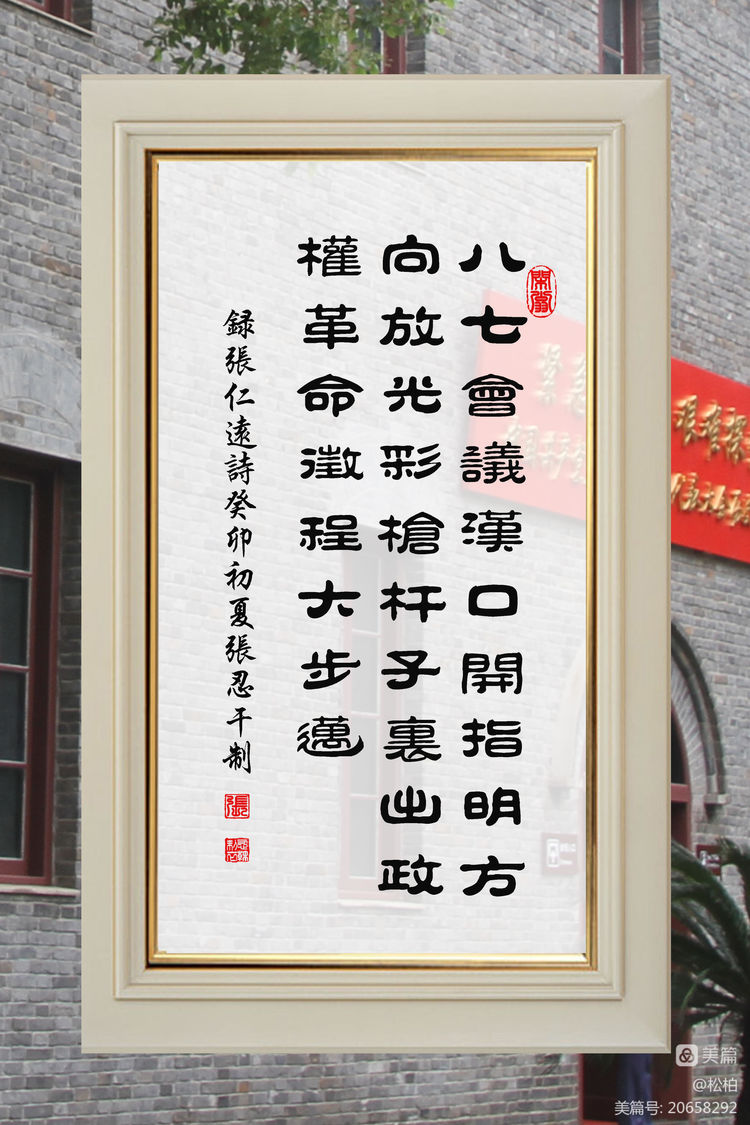 八七會議漢口開指明方
向放光彩槍杆子裏出政
權革命徵程大步邁
録張仁遠詩癸卯初夏張忍干制
張
美篇
@松柏
美篇号: 20658292